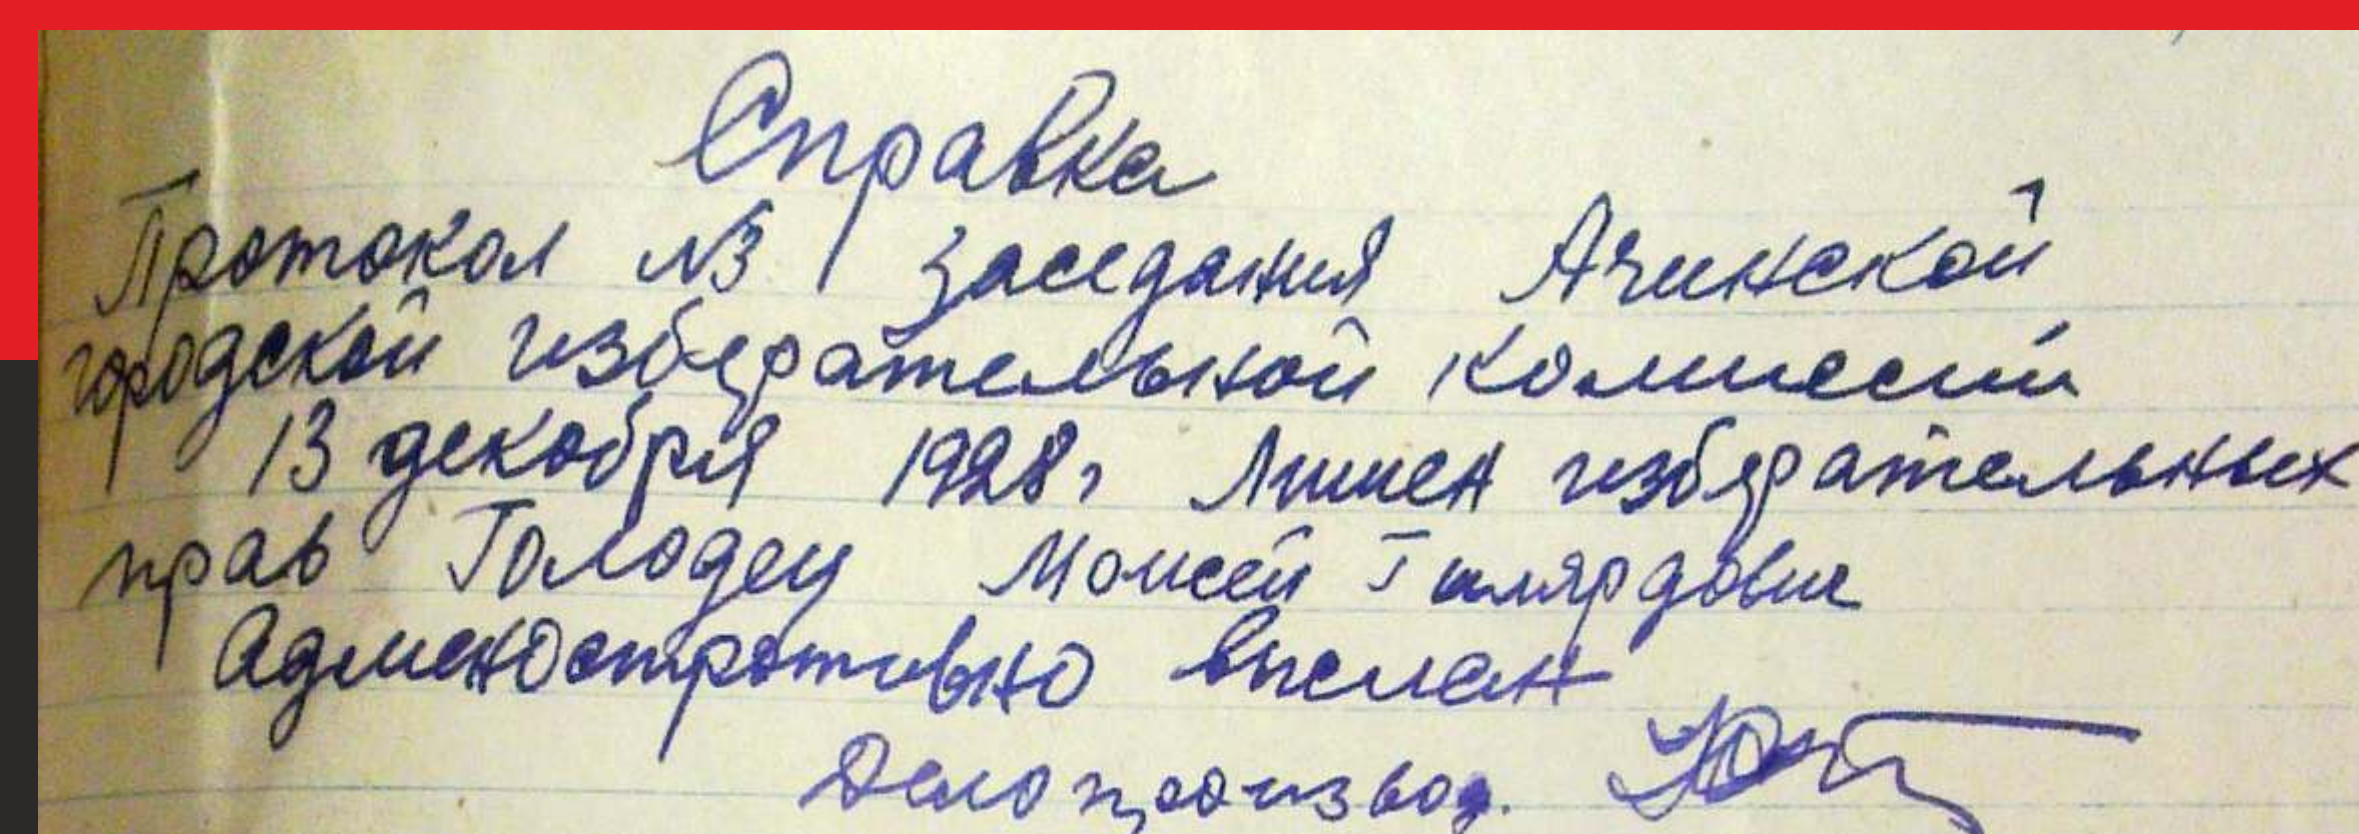 Справка
Протокол №3 заседания Ачинской
городской изберательной комиссии
13 декабря 1928г Лишен изберательных
прав Голодец Моисей Гилярдович
Адменостротивно выслан
Делопроизвод.